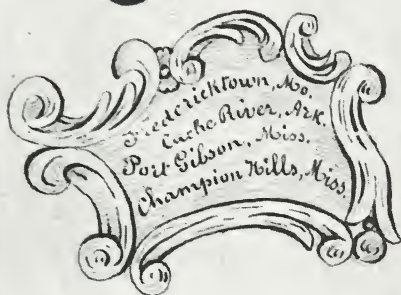 Fredericktown, Mo.
Cache River, Ark.
Port Gibson, Miss.
Champion Hills, Miss.